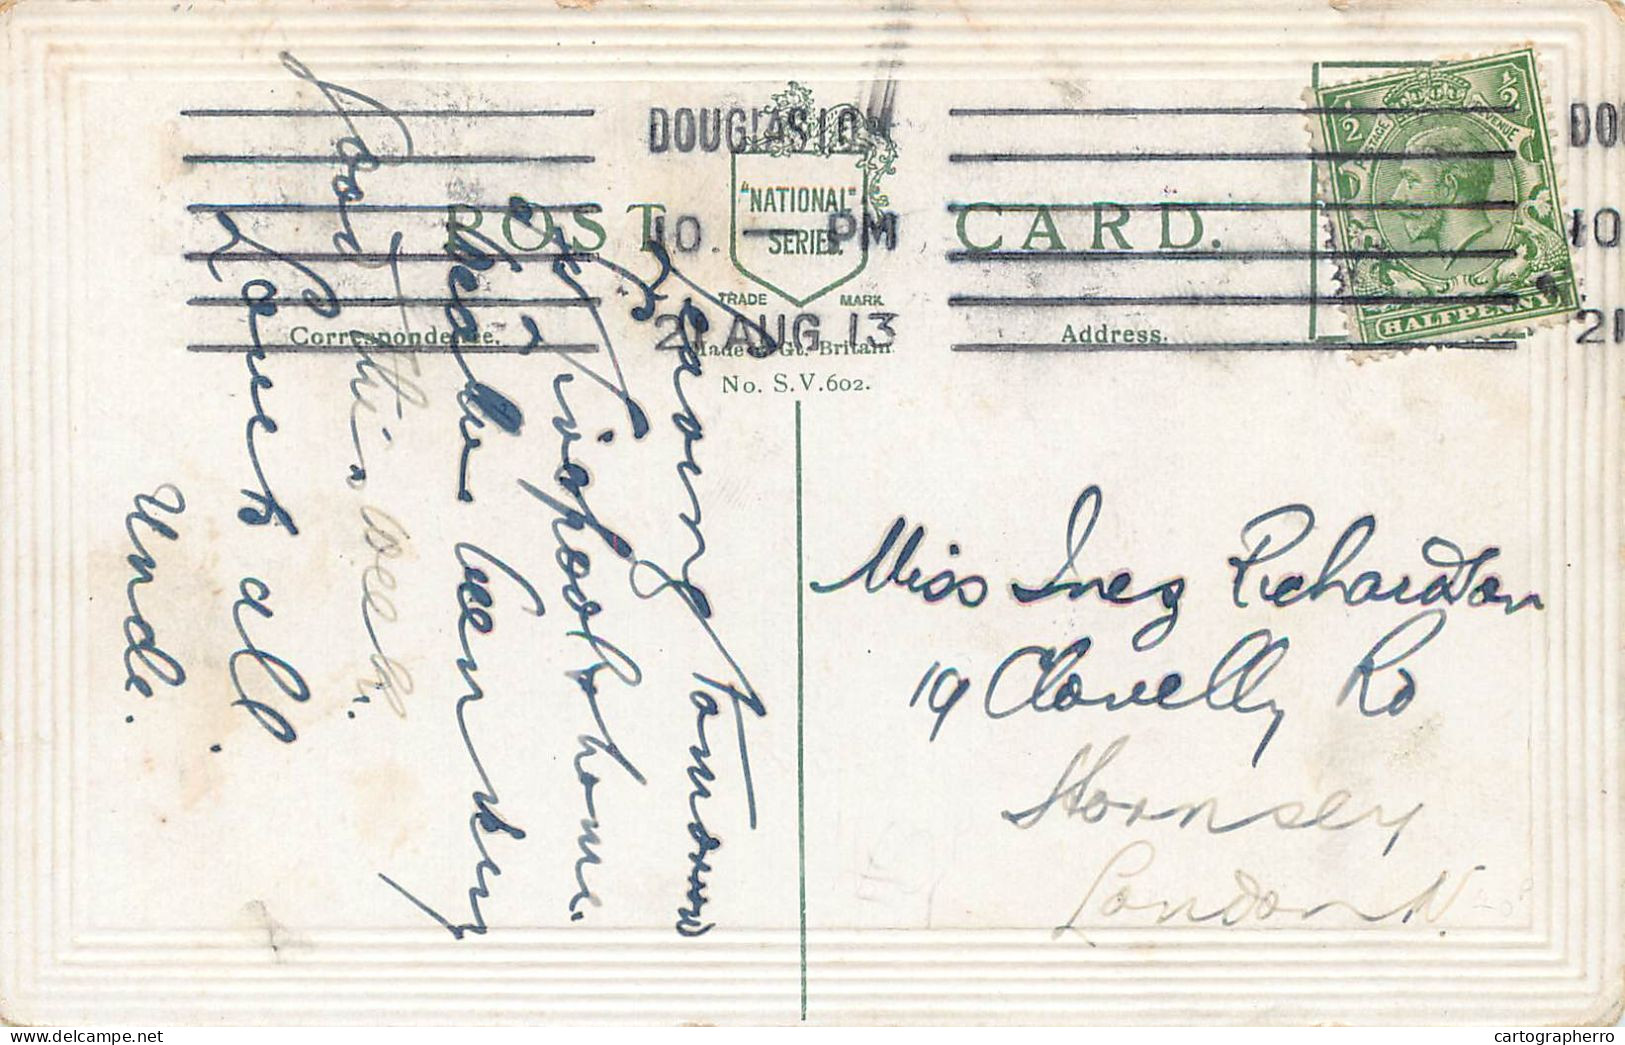 DOUGLAS I.O.M
10. — PM
21 AUG 13
DOU
10
21
POST CARD.
"NATIONAL"
SERIES.
TRADE MARK
Correspondence.
Made in Gt. Britain
No. S.V.602.
Address.
POSTAGE REVENUE
1/2 1/2
HALFPENNY
Leaving tomorrow
for
Liverpool & home.
been very
good this week.
Love to all
Uncle.
Miss Inez Richardson
19 Clovelly Rd
Hornsey
London N.
cartographerro